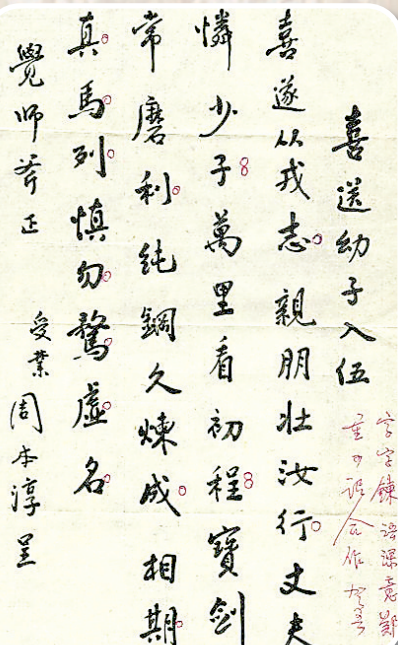 喜送幼子入伍
喜遂从戎志親朋壮汝行丈夫
憐少子萬里看初程寶劍
常磨利純鋼久煉成相期
真馬列慎勿騖虛名
覺師斧正
受業周本淳呈
字字鍊語深意鄭
重可誦合作也